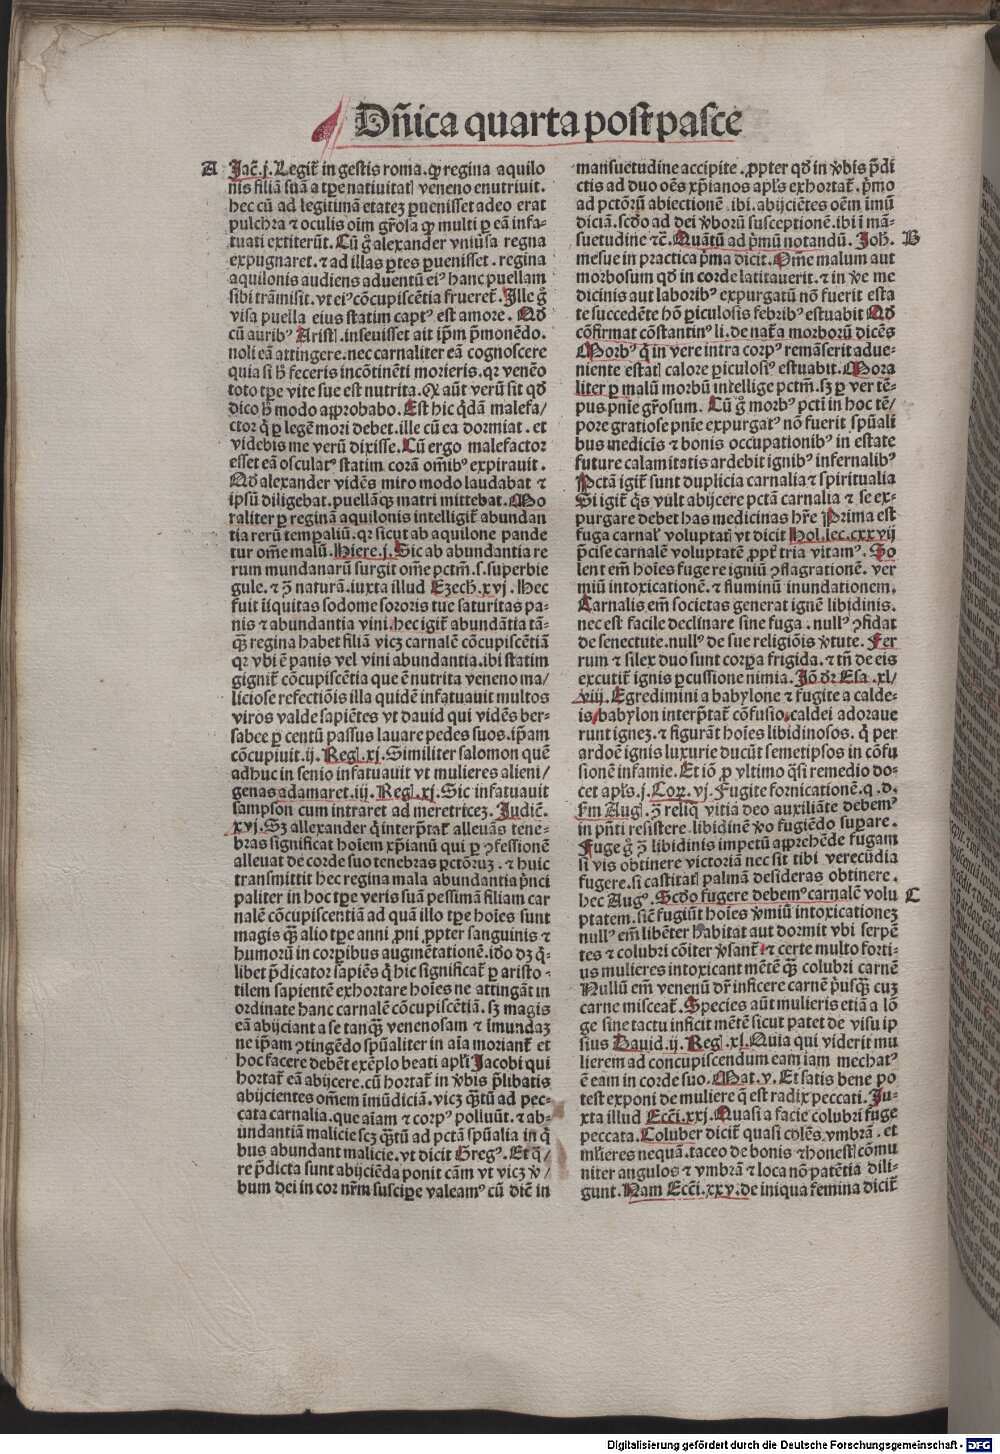 Dñica quarta post pasce
A
Jac̄. j. Legit̄ in gestis roma. ꝙ regina aquilo
nis filiā suā a tꝑe natiuitatꝭ veneno enutriuit.
hec cū ad legitimā etateꝫ ꝑuenisset adeo erat
pulchra ⁊ oculis oīm gr̄osa ꝙ multi ꝑ eā infa-
tuati extiterūt. Cū gͦ alexander vniu̾sa regna
expugnaret. ⁊ ad illas ꝑtes ꝑuenisset. regina
aquilonis audiens aduentū eiꝰ hanc puellam
sibi trāsmisit. vt eiꝰ cōcupiscētia frueret̄. Ille gͦ
visa puella eius statim captꝰ est amore. Qd̄
cū auribꝰ Aristꝭ. inseuisset ait ip̄m p̄monēdo.
noli eā attingere. nec carnaliter eā cognoscere
quia si h̄ feceris incōtinēti morieris. qꝛ venēo
toto tꝑe vite sue est nutrita. Q aūt verū sit qd̄
dico h̄ modo approbabo. Est hic q̄dā malefa/
ctor q̄ ꝑ legē mori debet. ille cū ea dormiat. et
videbis me verū dixisse. Cū ergo malefactor
esset eā osculatꝰ statim corā om̄ibꝰ expirauit.
Qd̄ alexander vidēs miro modo laudabat ⁊
ipsū diligebat. puellāqꝫ matri mittebat. Mo
raliter ꝑ reginā aquilonis intelligit̄ abundan
tia rerū temꝑaliū. qꝛ sicut ab aquilone pande
tur om̄e malū. Hiere. j. Sic ab abundantia re
rum mundanarū surgit om̄e pctm̄. s. superbie
gule. ⁊ ꝯ̄ naturā. iuxta illud Ezech. xvj. Hec
fuit īiquitas sodome sororis tue saturitas pa-
nis ⁊ abundantia vini. hec igit̄ abundātia tā-
qꝫ regina habet filiā vicꝫ carnalē cōcupiscētiā
qꝛ vbi ē panis vel vini abundantia. ibi statim
gignit̄ cōcupiscētia que ē nutrita veneno ma/
liciose refectiōis illa quidē infatuauit multos
viros valde sapiētes vt dauid qui vidēs ber-
sabee ꝑ centū passus lauare pedes suos. ip̄am
cōcupiuit. ij. Regꝭ. xj. Similiter salomon quē
adhuc in senio infatuauit vt mulieres alieni/
genas adamaret. iij. Regꝭ. xj. Sic infatuauit
sampson cum intraret ad meretriceꝫ. Judic̄.
xvj. Sꝫ allexander q̄ interp̄tat̄ alleuās tene-
bras significat hoīem xp̄ianū qui ꝑ ꝯfessionē
alleuat de corde suo tenebras pctōruꝫ. ⁊ huic
transmittit hec regina mala abundantia pn̄ci
paliter in hoc tꝑe veris suā pessimā filiam car
nalē cōcupiscentiā ad quā illo tꝑe hoīes sunt
magis qꝫ alio tꝑe anni ꝓni ꝓpter sanguinis ⁊
humorū in corꝑibus augmētationē. ido dꝫ q̄-
libet p̄dicator sapiēs q̄ hic significat̄ ꝑ aristo-
tilem sapientē exhortare hoīes ne attingāt in
ordinate hanc carnalē cōcupiscētiā. sꝫ magis
eā abijciant a se tanqꝫ venenosam ⁊ imundaꝫ
ne ip̄am ꝯtingēdo spūaliter in aīa moriant̄ et
hoc facere debēt exēplo beati apl̄i Jacobi qui
hortat̄ eā abijcere. cū hortat̄ in v̾bis p̄libatis
abijcientes om̄em imūdiciā. vicꝫ qꝫtū ad pec-
cata carnalia. que aīam ⁊ corpꝰ polluūt. ⁊ ab-
undantiā malicie scꝫ qꝫtū ad pctā spūalia in q̄
bus abundant malicie. vt dicit Gregꝰ. Et q̄/
re p̄dicta sunt abijciēda ponit cām vt vicꝫ v̾/
bum dei in cor nr̄m suscipe valeamꝰ cū dic̄ in
mansuetudine accipite. ꝓpter qd̄ in v̾bis p̄di
ctis ad duo oēs xp̄ianos apl̄s exhortat̄. p̄mo
ad pctōrū abiectionē. ibi. abijciētes oēm imū
diciā. scd̄o ad dei v̾borū susceptionē. ibi ī mā-
suetudine ⁊c̄. Quātū ad p̄mū notandū. Joh̄. B
mesue in practica p̄ma dicit. Om̄e malum aut
morbosum qd̄ in corde latitauerit. ⁊ in v̾e me
dicinis aut laboribꝰ expurgatū nō fuerit esta
te succedēte hō ꝑiculosis febribꝰ estuabit Qd̄
cōfirmat cōstantinꝰ li. de nat̄a morborū dicēs
Morbꝰ q̄ in vere intra corpꝰ remāserit adue-
niente estatꝭ calore ꝑiculosiꝰ estuabit. Mora
liter ꝑ malū morbū intellige pctm̄. sꝫ ꝑ ver tē-
pus pnīe gr̄osum. Cū gͦ morbꝰ pcti in hoc tē/
pore gratiose pnīe expurgatꝰ nō fuerit spūali
bus medicis ⁊ bonis occupationibꝰ in estate
future calamitatis ardebit ignibꝰ infernalibꝰ
Pctā igit̄ sunt duplicia carnalia ⁊ spiritualia
Si igit̄ q̄s vult abijcere pctā carnalia ⁊ se ex-
purgare debet has medicinas hr̄e Prima est
fuga carnalꝭ voluptatꝭ vt dicit Hol. lec. cxxvij
p̄cise carnalē voluptatē ꝓpt̄ tria vitamꝰ. So
lent em̄ hoīes fugere igniū ꝯflagrationē. ver
miū intoxicationē. ⁊ fluminū inundationem.
Carnalis em̄ societas generat ignē libidinis.
nec est facile declinare sine fuga. nullꝰ ꝯfidat
de senectute. nullꝰ de sue religiōis v̾tute. Fer
rum ⁊ silex duo sunt corꝑa frigida. ⁊ tn̄ de eis
excutit̄ ignis ꝑcussione nimia. Jō dꝛ Esa. xl/
viij. Egredimini a babylone ⁊ fugite a calde-
is/babylon interp̄tat̄ cōfusio. caldei adoraue
runt igneꝫ. ⁊ figurāt hoīes libidinosos. q̄ per
ardoē ignis luxurie ducūt semetipsos in cōfu
sionē infamie. Et iō ꝓ vltimo q̄si remedio do-
cet apl̄s. j. Coꝝ. vj. Fugite fornicationē. q. d.
scd̄m Augꝭ. ꝯ̄ reliq̄ vitia deo auxiliāte debemꝰ
in pn̄ti resistere. libidinē v̾o fugiēdo suꝑare.
Fuge gͦ ꝯ̄ libidinis impetū apprehēde fugam
si vis obtinere victoriā nec sit tibi verecūdia
fugere. si castitatꝭ palmā desideras obtinere.
hec Augꝰ. Scd̄o fugere debemꝰ carnalē volu C
ptatem. sic̄ fugiūt hoīes v̾miū intoxicationeꝫ
nullꝰ em̄ libēter habitat aut dormit vbi serpē
tes ⁊ colubri cōiter v̾sant̄ ⁊ certe multo forti-
us mulieres intoxicant mētē qꝫ colubri carnē
Nullū em̄ venenū dr̄ inficere carnē p̄usqꝫ cuꝫ
carne misceat̄. Species aūt mulieris etiā a lō
ge sine tactu inficit mētē sicut patet de visu ip
sius Dauid. ij. Regꝭ. xl. Quia qui viderit mu
lierem ad concupiscendum eam iam mechatꝰ
ē eam in corde suo. Mat. v. Et satis bene po
test exponi de muliere q̄ est radix peccati. Ju-
xta illud Ecc̄i. xxj. Quasi a facie colubri fuge
peccata. Coluber dicit̄ quasi colēs vmbrā. et
mlieres nequā. taceo de bonis ⁊ honestꝭ cōmu
niter angulos ⁊ vmbrā ⁊ loca nō patētia dili-
gunt. Nam Ecc̄i. xxv. de iniqua femina dicit̄
Digitalisierung gefördert durch die Deutsche Forschungsgemeinschaft - DFG